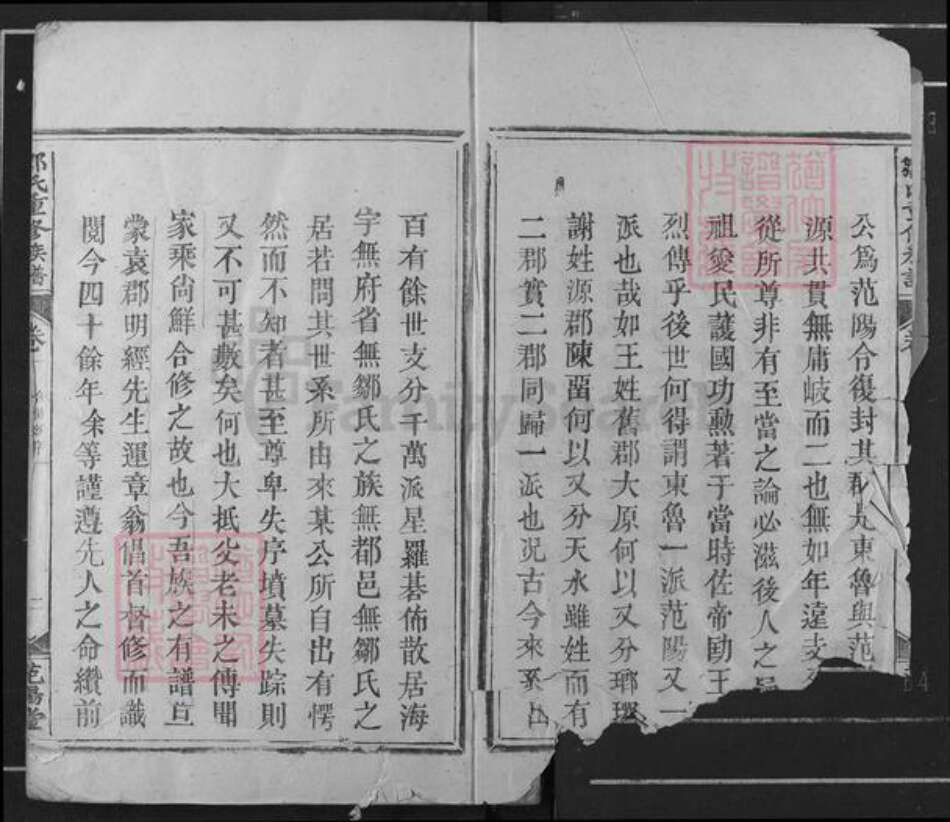 公爲范陽令復封其郡是東魯與范
源共貫無庸岐而二也無如年遠支
從所尊非有至當之論必滋後人之
祖發民護國功勲著于當時佐帝勖王
烈傳乎後世何得謂東魯一派范陽又一
派也哉如王姓舊郡大原何以又分瑯琊
謝姓源郡陳畱何以又分天水雖姓而有
二郡實二郡同歸一派也況古今來系
百有餘世支分千萬派星羅碁佈散居海
宇無府省無鄒氏之族無都邑無鄒氏之
居若問其世系所由來某公所自出有愕
然而不知者甚至尊卑失序墳墓失踪則
又不可甚數矣何也大抵父老未之傳聞
家乘尙鮮合修之故也今吾族之有譜亘
蒙袁郡明經先生運章翁倡首督修而識
閱今四十餘年余等謹遵先人之命纘前
鄒氏重修族譜
卷
二
范陽堂